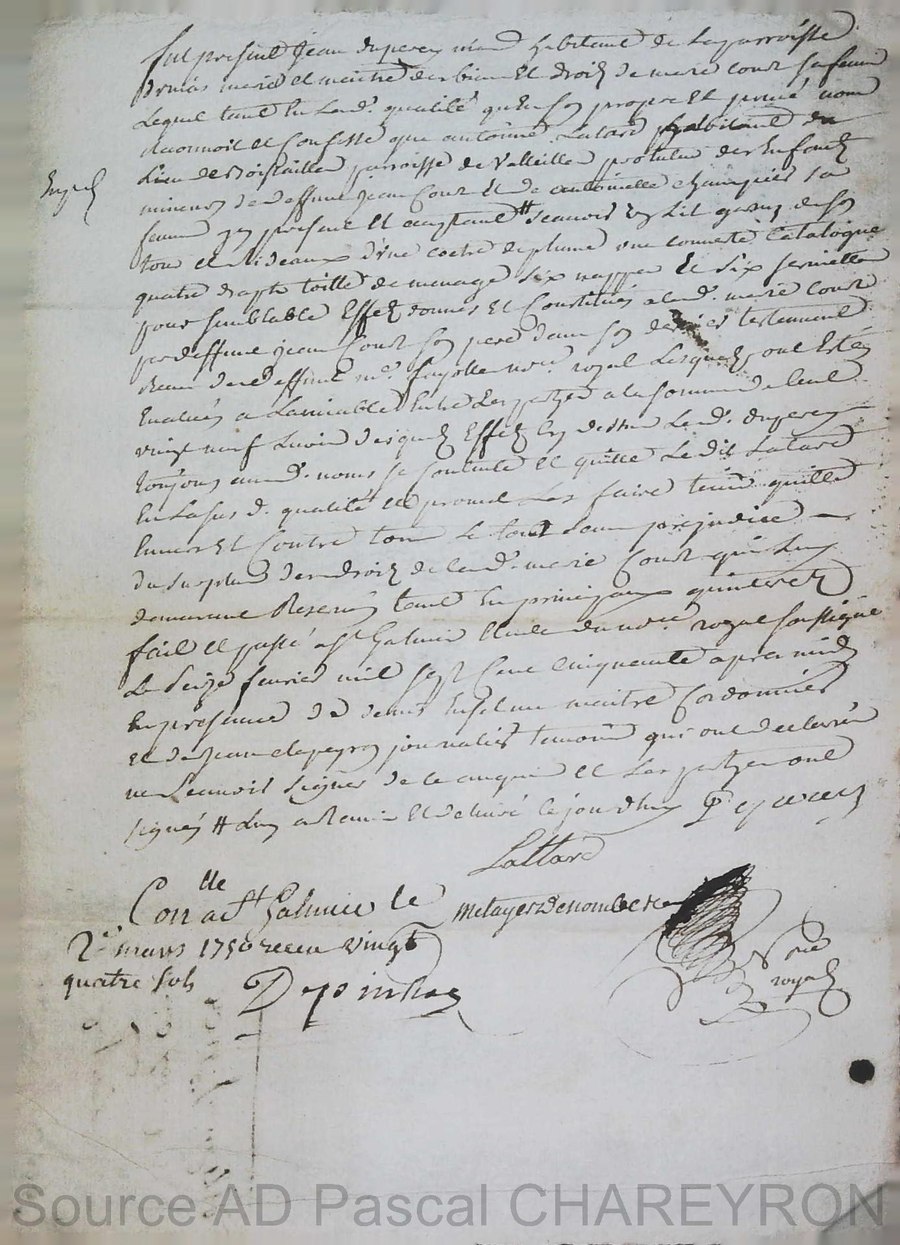 fut present Jean duperey mard habitant de la parroisse
mari et maitre des biens et droits de marie court sa femme
Lequel tant en lad. qualité qu'en son propre et privé nom
reconnoit et confesse que antoinne Latard habitant du
Lieu de parroisse de Valleille protuteur des enfants
mineurs de deffunt Jean Court et de antoinette champier sa
femme present et acceptant # scavoir un lit garny de son
tour et rideaux d'une coetre de plume une couverte Catalogne
quatre draps toille de menage six nappes et six serviettes
pour semblable Effets donnés et Constitués a lad. marie Court
par deffunt jean Court son pere dans son dernier testament
receu de deffunt me. fayolle nore. royal Lesquels ont Estés
Evalués a Lamiable Entre Les partyes a la somme de Cent
vingt neuf Livres desquels Effets cy dessus Led. duperey
toujours aud. nom se contente et quitte Ledit Latard
En sa sus d. qualité et promet Les faire tenir quitte
Envers Et Contre tous Le tout sans prejudice
du surplus des droits de lad. marie Court qui luy
demeurent Reservés tant En principaux qu'interets
fait et passé a St Galmier Etude du nore. royal soussigné
Le seize fevrier mil sept Cent Cinquante apres midy
En presence de denis maitre Cordonnier
et de Jean journalier temoins qui ont declarés
ne scavoir signer de ce enquis et Les partyes ont
signés # luy a Remis Et delivré ce jourdhuy
Lattard
Conlle a St Galmier le
2e mars 1750 receu vingt
quatre sols
nore
royal
Source AD Pascal CHAREYRON